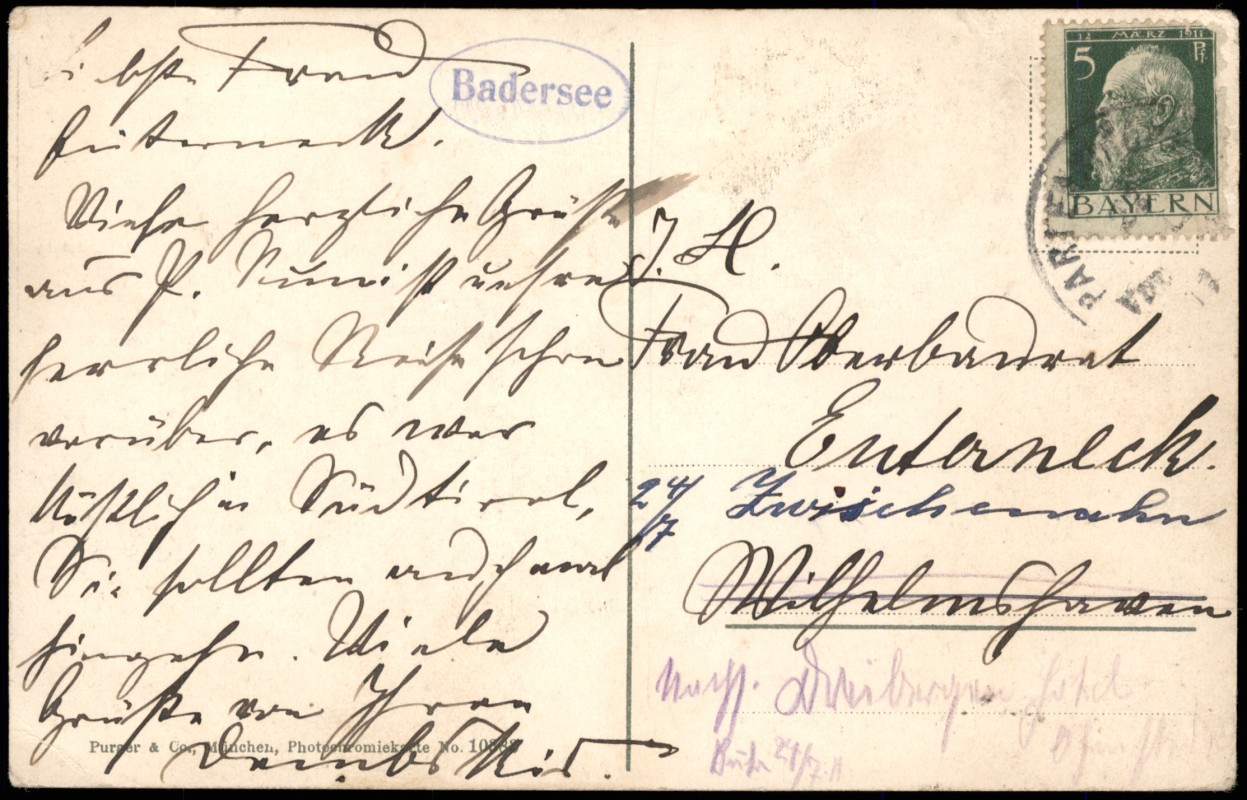 Liebste Frau
Euterneck.
Viele herzliche Grüße
aus P. Nun ist unsre
herrliche Reise schon
vorüber, es war
köstlich in Südtirol,
Sie sollten auch mal
hingehn. Viele
Grüße von Ihren
Badersee
Purger & Co., München, Photochromiekarte No.
12 MÄRZ 1911
5 Pf
BAYERN
PARTEN
I. H.
Frau Oberbaurat
Euterneck.
24/7 Zwischenahn
Wilhelmshaven
Nachs. Dreibergen Hotel